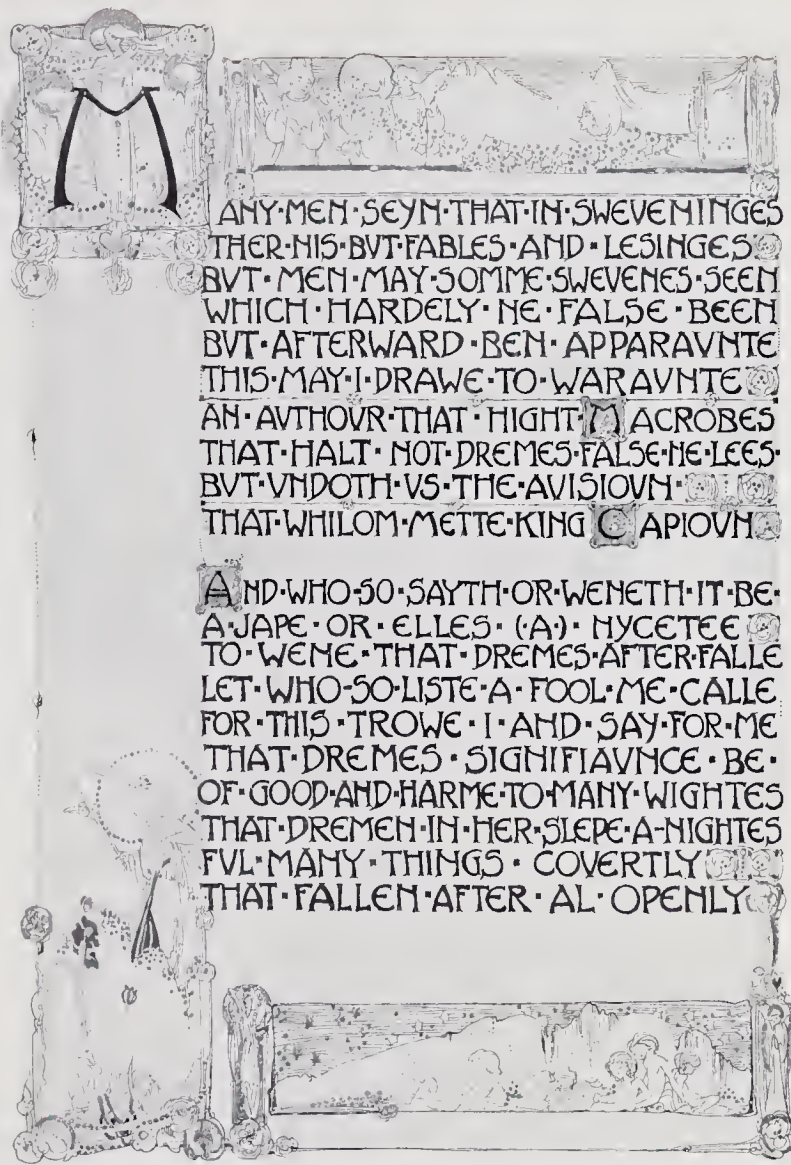 MANY·MEN·SEYN·THAT·IN·SWEVENINGES
THER·NIS·BVT·FABLES·AND·LESINGES
BVT·MEN·MAY·SOMME·SWEVENES·SEEN
WHICH·HARDELY·NE·FALSE·BEEN
BVT·AFTERWARD·BEN·APPARAVNTE
THIS·MAY·I·DRAWE·TO·WARAVNTE
AN·AVTHOVR·THAT·HIGHT·MACROBES
THAT·HALT·NOT·DREMES·FALSE·NE·LEES·
BVT·VNDOTH·VS·THE·AVISIOVN·
THAT·WHILOM·METTE·KING CAPIOVN
AND·WHO·SO·SAYTH·OR·WENETH·IT·BE·
A·JAPE·OR·ELLES·(·A·)·NYCETEE
TO·WENE·THAT·DREMES·AFTER·FALLE
LET·WHO-SO·LISTE·A·FOOL·ME·CALLE
FOR·THIS·TROWE·I·AND·SAY·FOR·ME
THAT·DREMES·SIGNIFIAVNCE·BE·
OF·GOOD·AND·HARME·TO·MANY·WIGHTES
THAT·DREMEN·IN·HER·SLEPE·A-NIGHTES
FVL·MANY·THINGS·COVERTLY
THAT·FALLEN·AFTER·AL·OPENLY